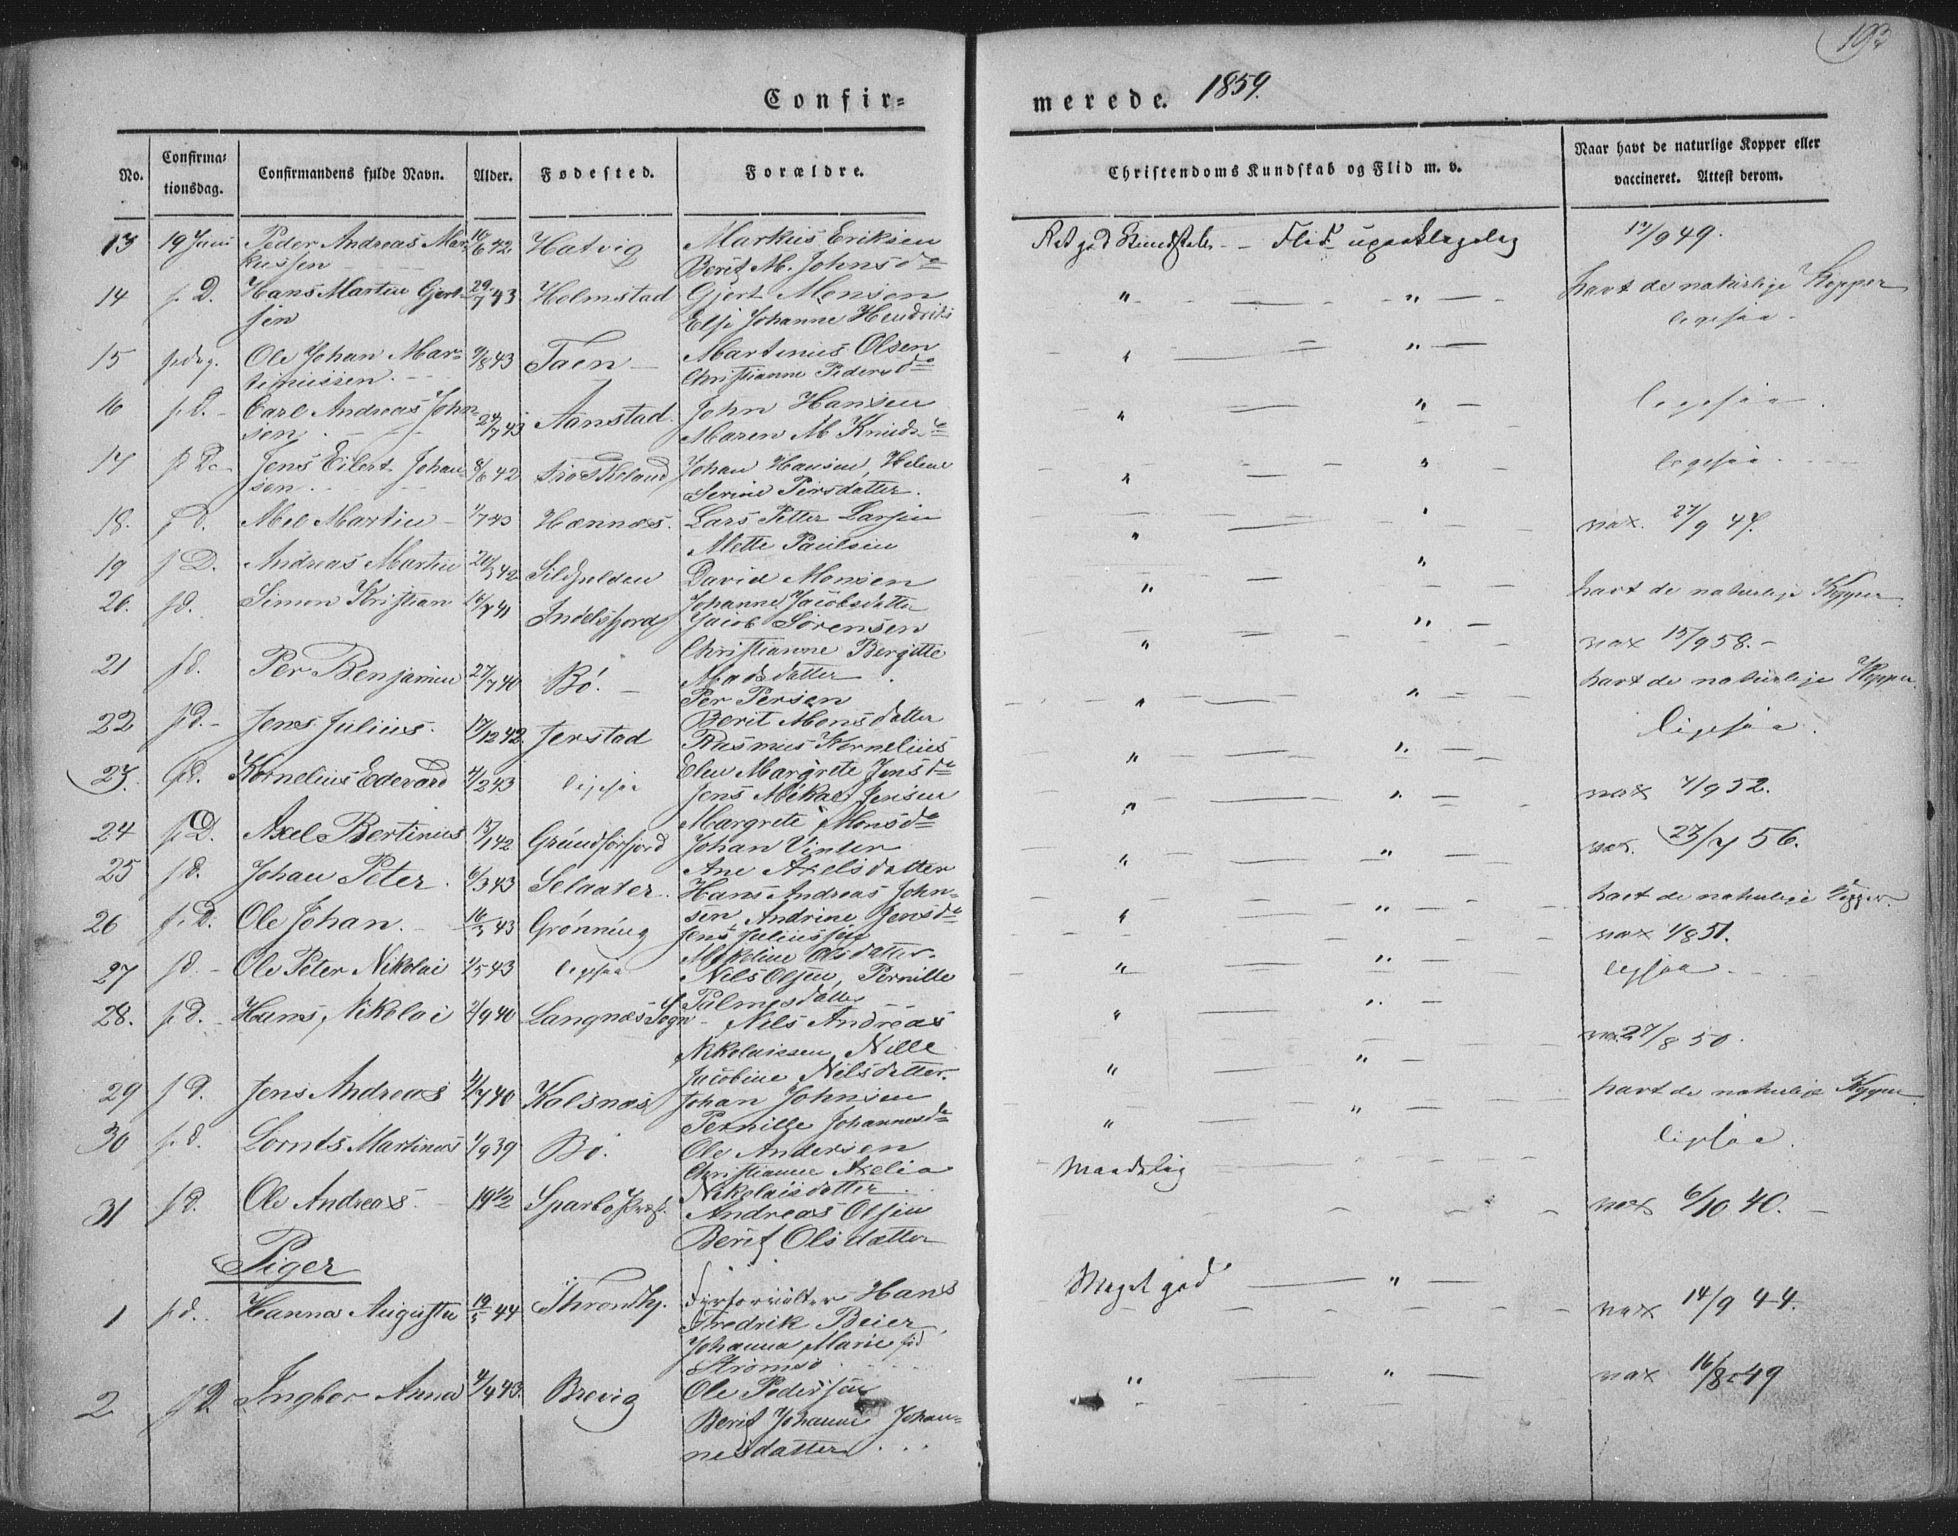 193
Confir-
merede. 1859.
No.
Confirma-
tionsdag.
Confirmandens fulde Navn.
Alder.
Fødested.
Forældre.
Christendoms Kundskab og Flid m. v.
Naar havt de naturlige Kopper eller
vaccineret. Attest derom.
13 19 Juni Peder Andreas Mar- 16/6 42 Hatvig Markus Eriksen Ret god Kundskab - Flid upaaklagelig 12/9 49.
kussen Berit M. Johnsd
14 p. D. Hans Martin Gjert- 29/7 43 Holmstad Gjert Monsen " " havt de naturlige Kopper
sen Else Johanne Hendriks ligesaa
15 p. dag. Ole Johan Mar- 9/8 43 Taen Martinus Olsen " "
tinussen. Christianne Pedersd
16 p. D. Carl Andreas John- 24/7 43 Aanstad. John Hansen " " ligesaa.
sen Maren M Knuds
17 p. D. Jens Eilert Johan- 8/6 42 Johan Hansen, Helene " " ligesaa
sen Serine Persdatter.
18. p. D. Abel Martin 1/7 43 Hannæs. Lars Petter Larsen " " vax. 27/9 47.
Mette Paulsen
19 p. D. Andreas Martin 20/3 42 Sildpolden David Monsen " " havt de naturlige Kopper.
Johanne Jacobsdatter
20. p. d. Simon Kristian 14/8 41 Indelsfjord Jacob Sørensen " " vax 15/9 58.
Christianne Bergitte
21 p. d. Per Benjamin 27/7 40 Bø. Madsdatter " " havt de naturlige Kopper.
Per Persen
22 p. d. Jens Julius. 17/12 42. Jerstad Berit Monsdatter " " ligesaa.
Rasmus Kornelius
23. p. d. Kornelius Edevard 4/2 43 ligesaa Elen Margrete Jensd " " vax 4/9 52.
Jens Mikal Jensen
24 p. D. Axel Bertinius 13/1 42 Grundforfjord Margrete Monsd " " vax. 23/7 56.
Johan Vinter
25 p. d. Johan Peter. 6/3 43 Selaater. Ane Axelsdatter " " havt de naturlige Kopper.
Hans Andreas John-
26 p. D. Ole Johan. 16/3 43 Grønning sen, Andrine Jensd " " vax 4/8 51.
Jens Juliussen
27 p. d. Ole Peter Nikolai 1/5 43 ligesaa Mekeline Olsdatter. " " ligesaa
Nils Olsen, Pernille
28. p. D. Hans Nikolai 2/9 40 Langnæs Sogn Palmesdatter " " vax 27/8 50.
Nils Andreas
Nikolaisen Nille
29 p. D. Jens Andreas 2/7 40 Kalsnæs Jacobine Nelsdatter. " " havt de naturlige Kopper.
Johan Johnsen
30 p. d. Lornts Martinus 1/9 39 Bø. Pernille Johannesd " " ligesaa.
Ole Andersen
Christianne Axelia
31 p. d. Ole Andreas 1942 Sparbo Nikolaisdatter Maadelig vax 6/10 40.
Andreas Olsen
Berit Olsdatter
Piger
1 p. d. Hanna Augusta 19/5 44 Throndhj. Fyrforvalter Hans Meget god " vax 14/9 44.
Fredrik Beier,
Johanna Marie fød
Strømsø
2 p. D. Ingbor Anna 4/4 43. Brevig Ole Pedersen " " vax 16/8 49
Berit Johanne Johan-
nesdatter